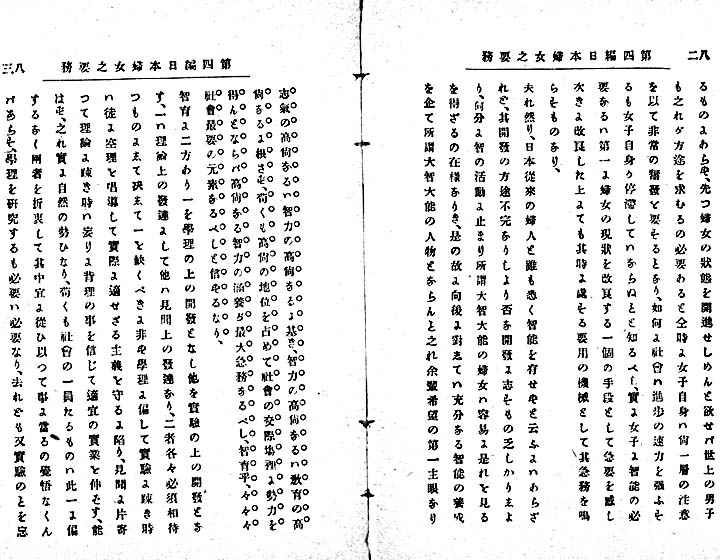 八二
第四編日本婦女之要務
るものよあらせ、先つ婦女の狀態を開進せしめんと欲せバ世上の男子
も之れガ方途を求むるの必要あると仝時よ女子自身ハ尙一層の注意
を以て非常の奮發と要そるとあり、如何よ社會ハ進歩の速力を强ふそ
るも女子自身り停滯していあらぬとと知るべし、實よ女子よ智能の必
要あるハ第一よ婦女の現狀を改良する一個の手段として急要を感し
次きよ改良した上よても其時よ處そる要用の機械として其急務を鳴
らそものあり、
夫れ然り、日本從來の婦人と雖も悉く智能を有せせと云ふよハあらざ
れと、其開發の方途不完ありしより否を開發よ志そもの乏しかりよよ
り、何分よ智の活動よ止まり所謂大智大能の婦女ハ容易よ是れを見る
を得ざるの在樣ありき、是の故よ向後よ對よてハ充分ある智能の養成
を企て所謂大智大能の人物とあらんと之れ余輩希望の第一主眼あり
八三
第四編日本婦女之要務
志氣の高尙あるハ智力の高尙あるよ基き、智力の高尙あるハ敎育の高
尙あるよ根させ、苟くも高尙の地位を占めて社會の交際塲裡よ勢力を
得んとならバ高尙ある智力の涵養ガ最大急務あるべし、智育乎、々々々
社會最要の元素あるべしと信せるなり、
智育よ二方わり一を學理の上の開發となし他を實驗の上の開發とあ
す、一ハ理論上の發達よして他ハ見聞上の發達あり、二者各々必須相待
つものよよて决よて一を缺くべきよ非せ學理よ偏して實驗よ疎き時
ハ徒よ空理を唱導して實際よ適せざる主義と守るよ陷り、見聞よ片寄
つて理論よ疎き時ハ妄りよ背理の事を信じて適宜の實業と伸そす、能
はせ、之れ實よ自然の勢ひなり、苟くも社會の一員たるものハ此一よ偏
するあく兩者を折衷して其中宜よ從ひ以つて事よ當るの覺悟なくん
バあらそ、學理を研究するも必要ハ必要なり、去れとも又實驗のとを忘